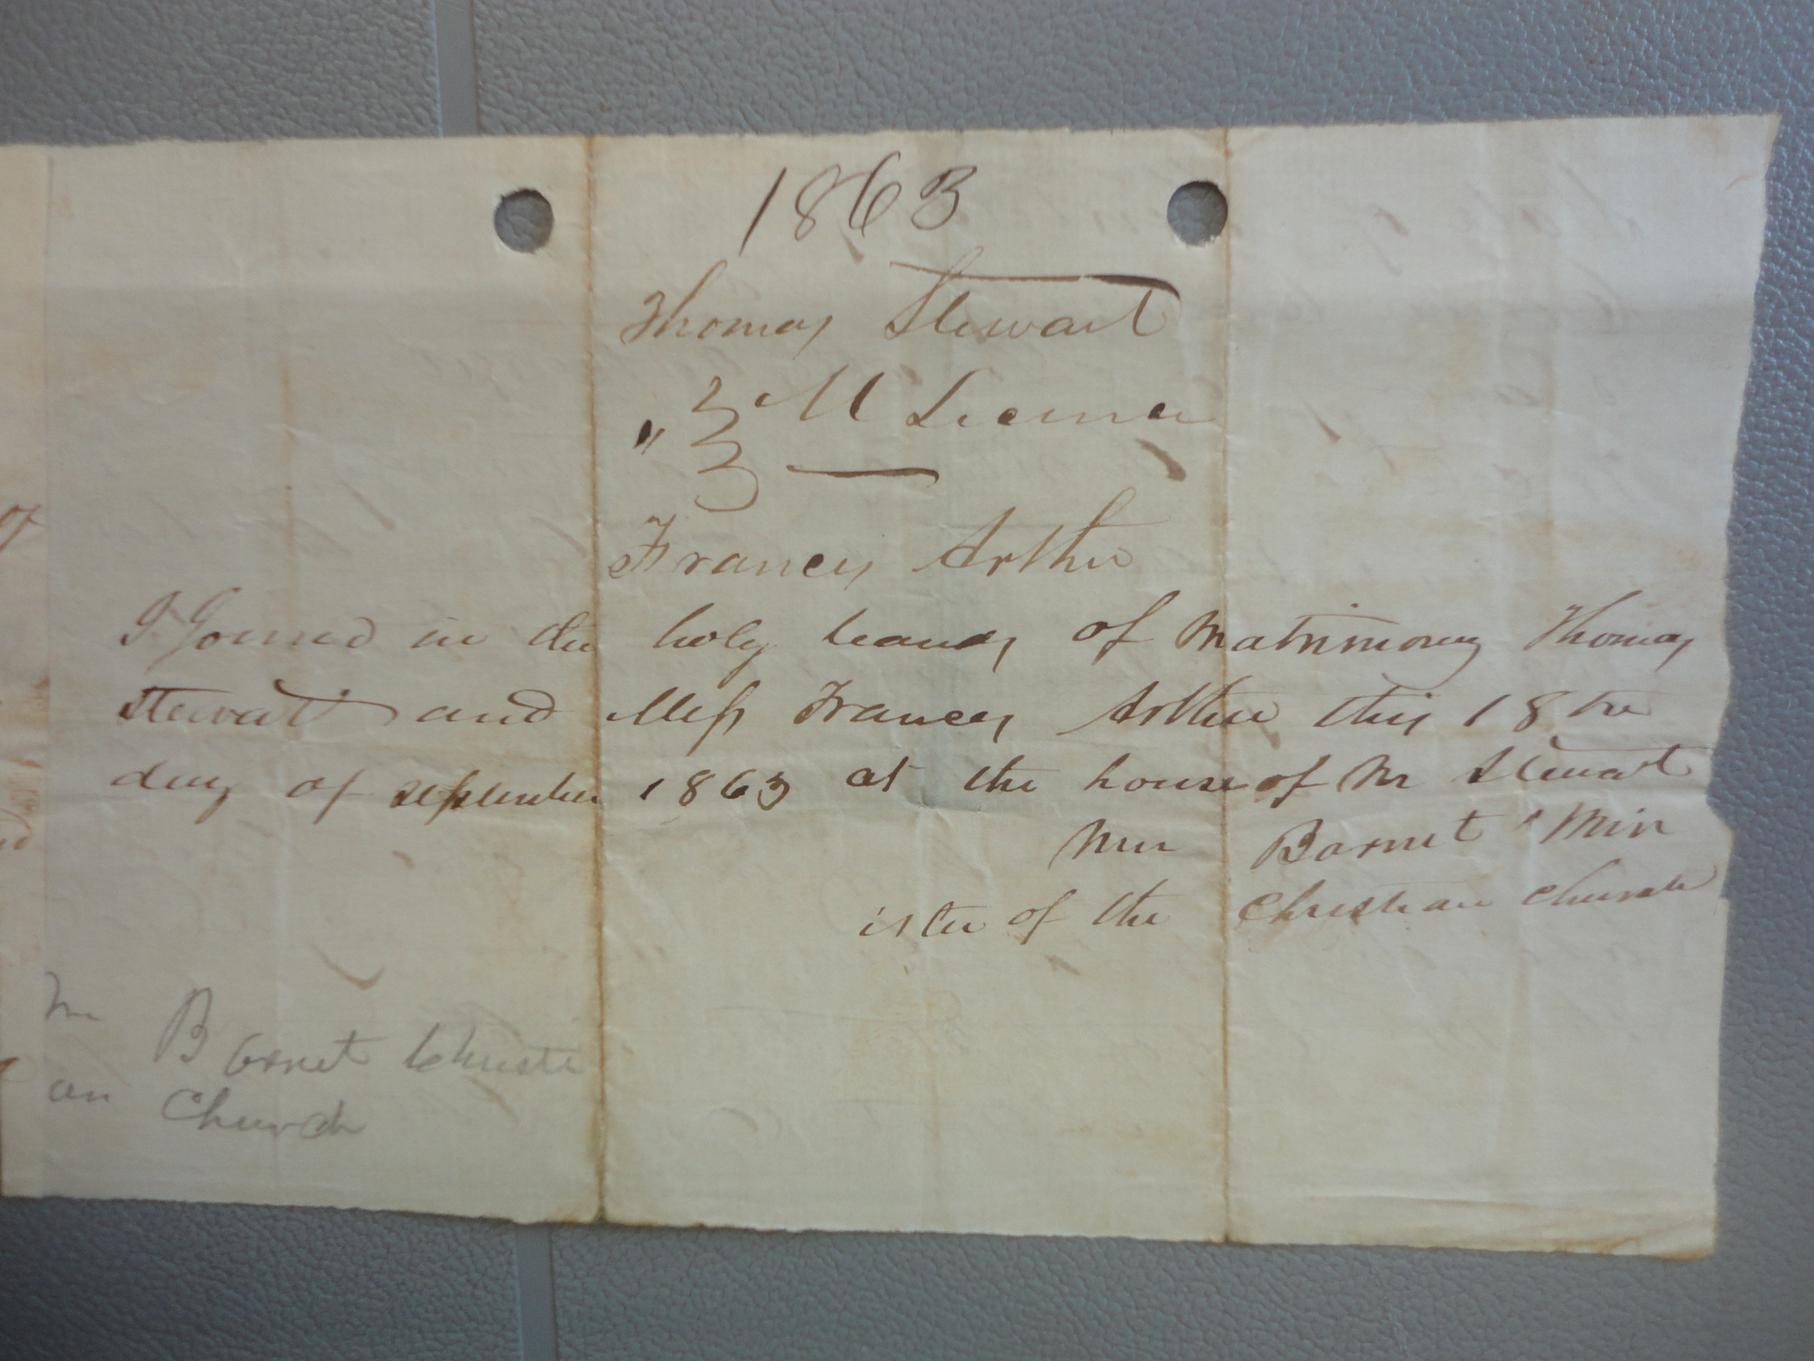 1863
Thomas Stewart
" M License
Frances Arther
I Joined in the holy bands of Matrimony Thomas
Stewart and Miss Frances Arther this 18the
day of september 1863 at the house of Mr Stewart
Barnet Min
ister of the Christian Church
of
Barnet Christi
an Church